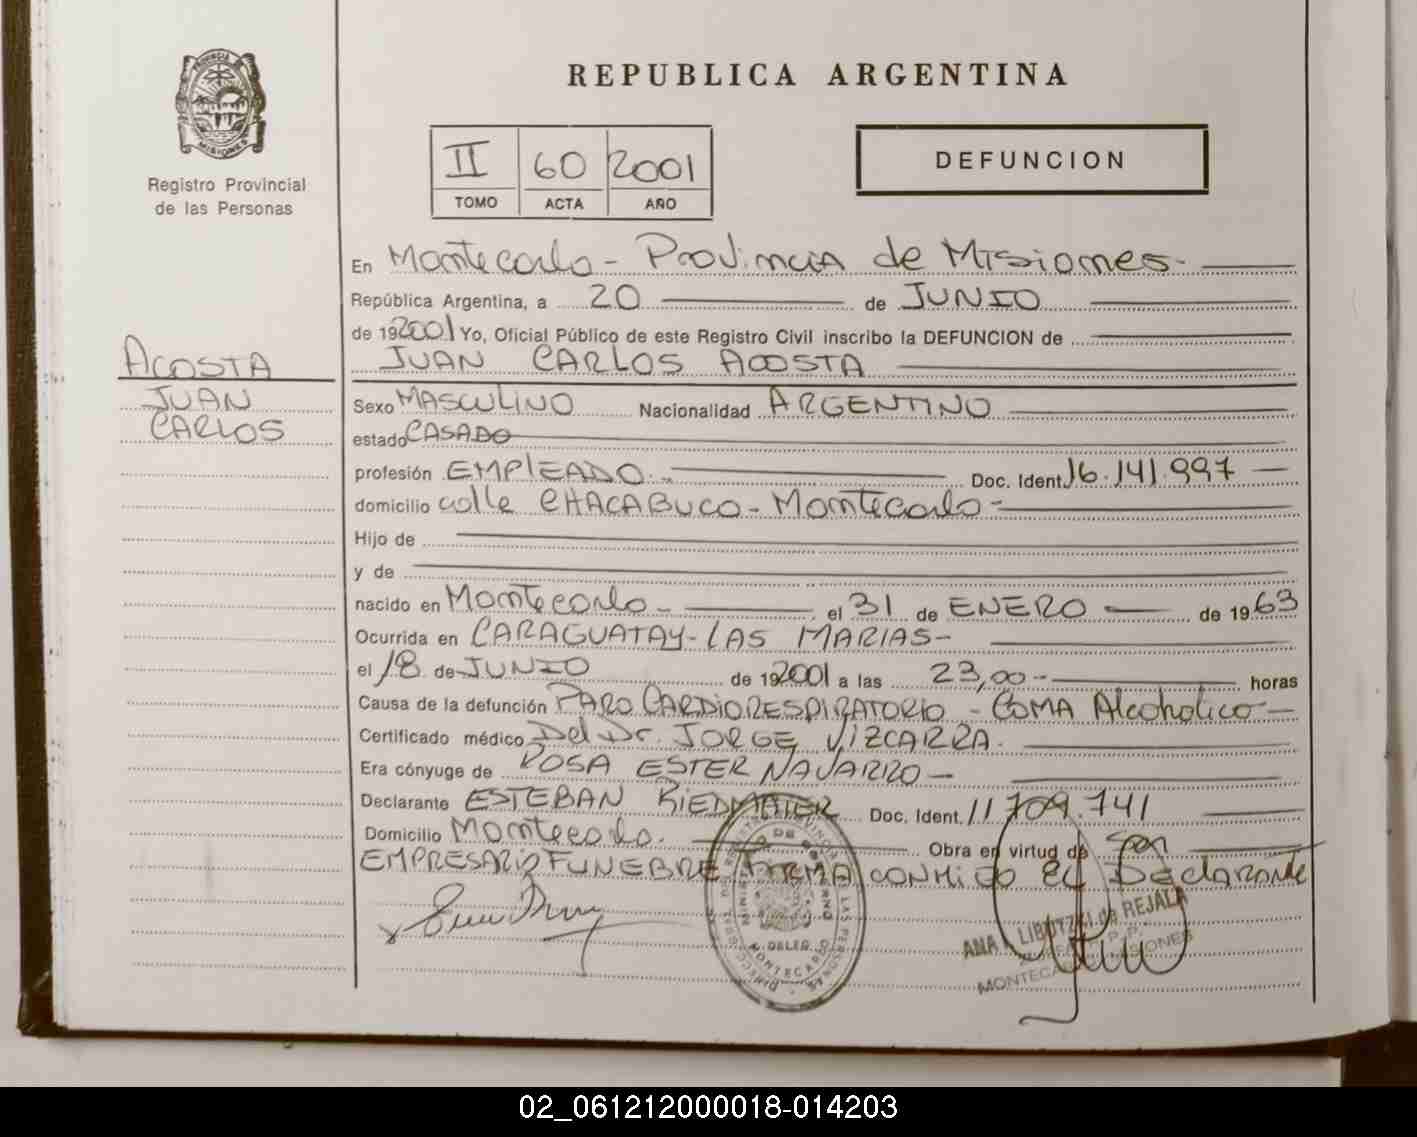 PROVINCIA DE
MISIONES
Registro Provincial
de las Personas
REPUBLICA ARGENTINA
II 60 2001
TOMO ACTA AÑO
DEFUNCION
En Montecarlo - Provincia de Misiones -
República Argentina, a 20 de JUNIO
de 192001 Yo, Oficial Público de este Registro Civil inscribo la DEFUNCION de
JUAN CARLOS ACOSTA
ACOSTA
JUAN
CARLOS
Sexo MASCULINO Nacionalidad ARGENTINO
estado CASADO
profesión EMPLEADO. Doc. Ident. 16.141.997
domicilio calle CHACABUCO - Montecarlo -
Hijo de
y de
nacido en Montecarlo - el 31 de ENERO de 1963
Ocurrida en CARAGUATAY - LAS MARIAS -
el 18 de JUNIO de 192001 a las 23,00 - horas
Causa de la defunción PARO CARDIORESPIRATORIO - COMA Alcoholico -
Certificado médico Del Dr. JORGE VIZCARRA.
Era cónyuge de ROSA ESTER NAVARRO -
Declarante ESTEBAN RIEDMAIER Doc. Ident. 11709.741
Domicilio Montecarlo. Obra en virtud de ser
EMPRESARIO FUNEBRE FIRMA CONMIGO EL DEClARANTE
ANA LIBUTZKI de REJALA
MONTECARLO MISIONES
02_061212000018-014203